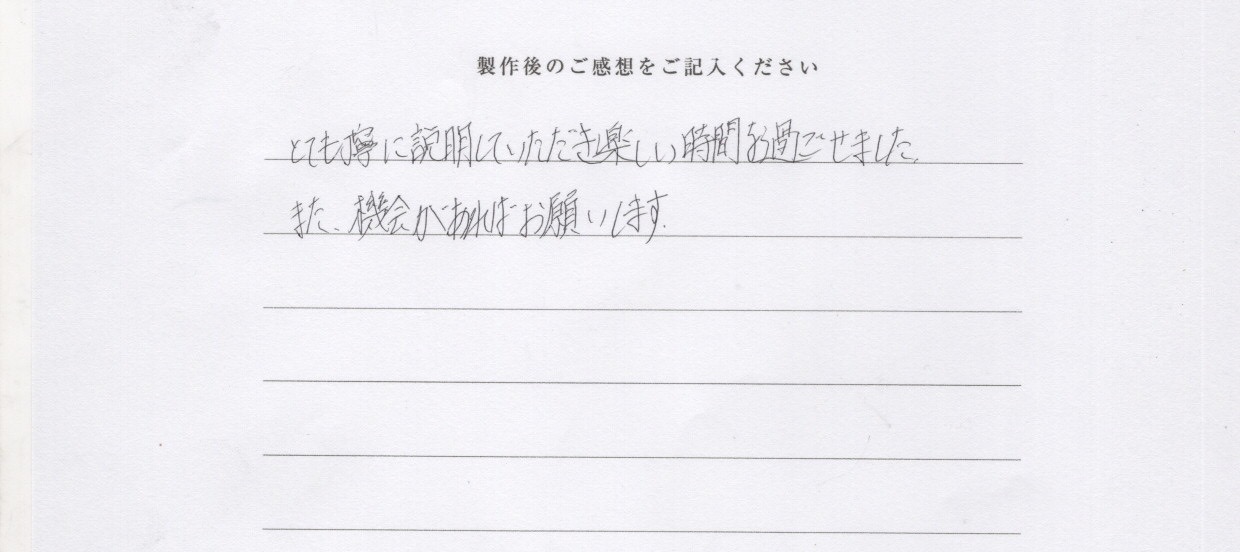 製作後のご感想をご記入ください
とても丁寧に説明していただき楽しい時間を過ごせました。
また、機会があればお願いします。